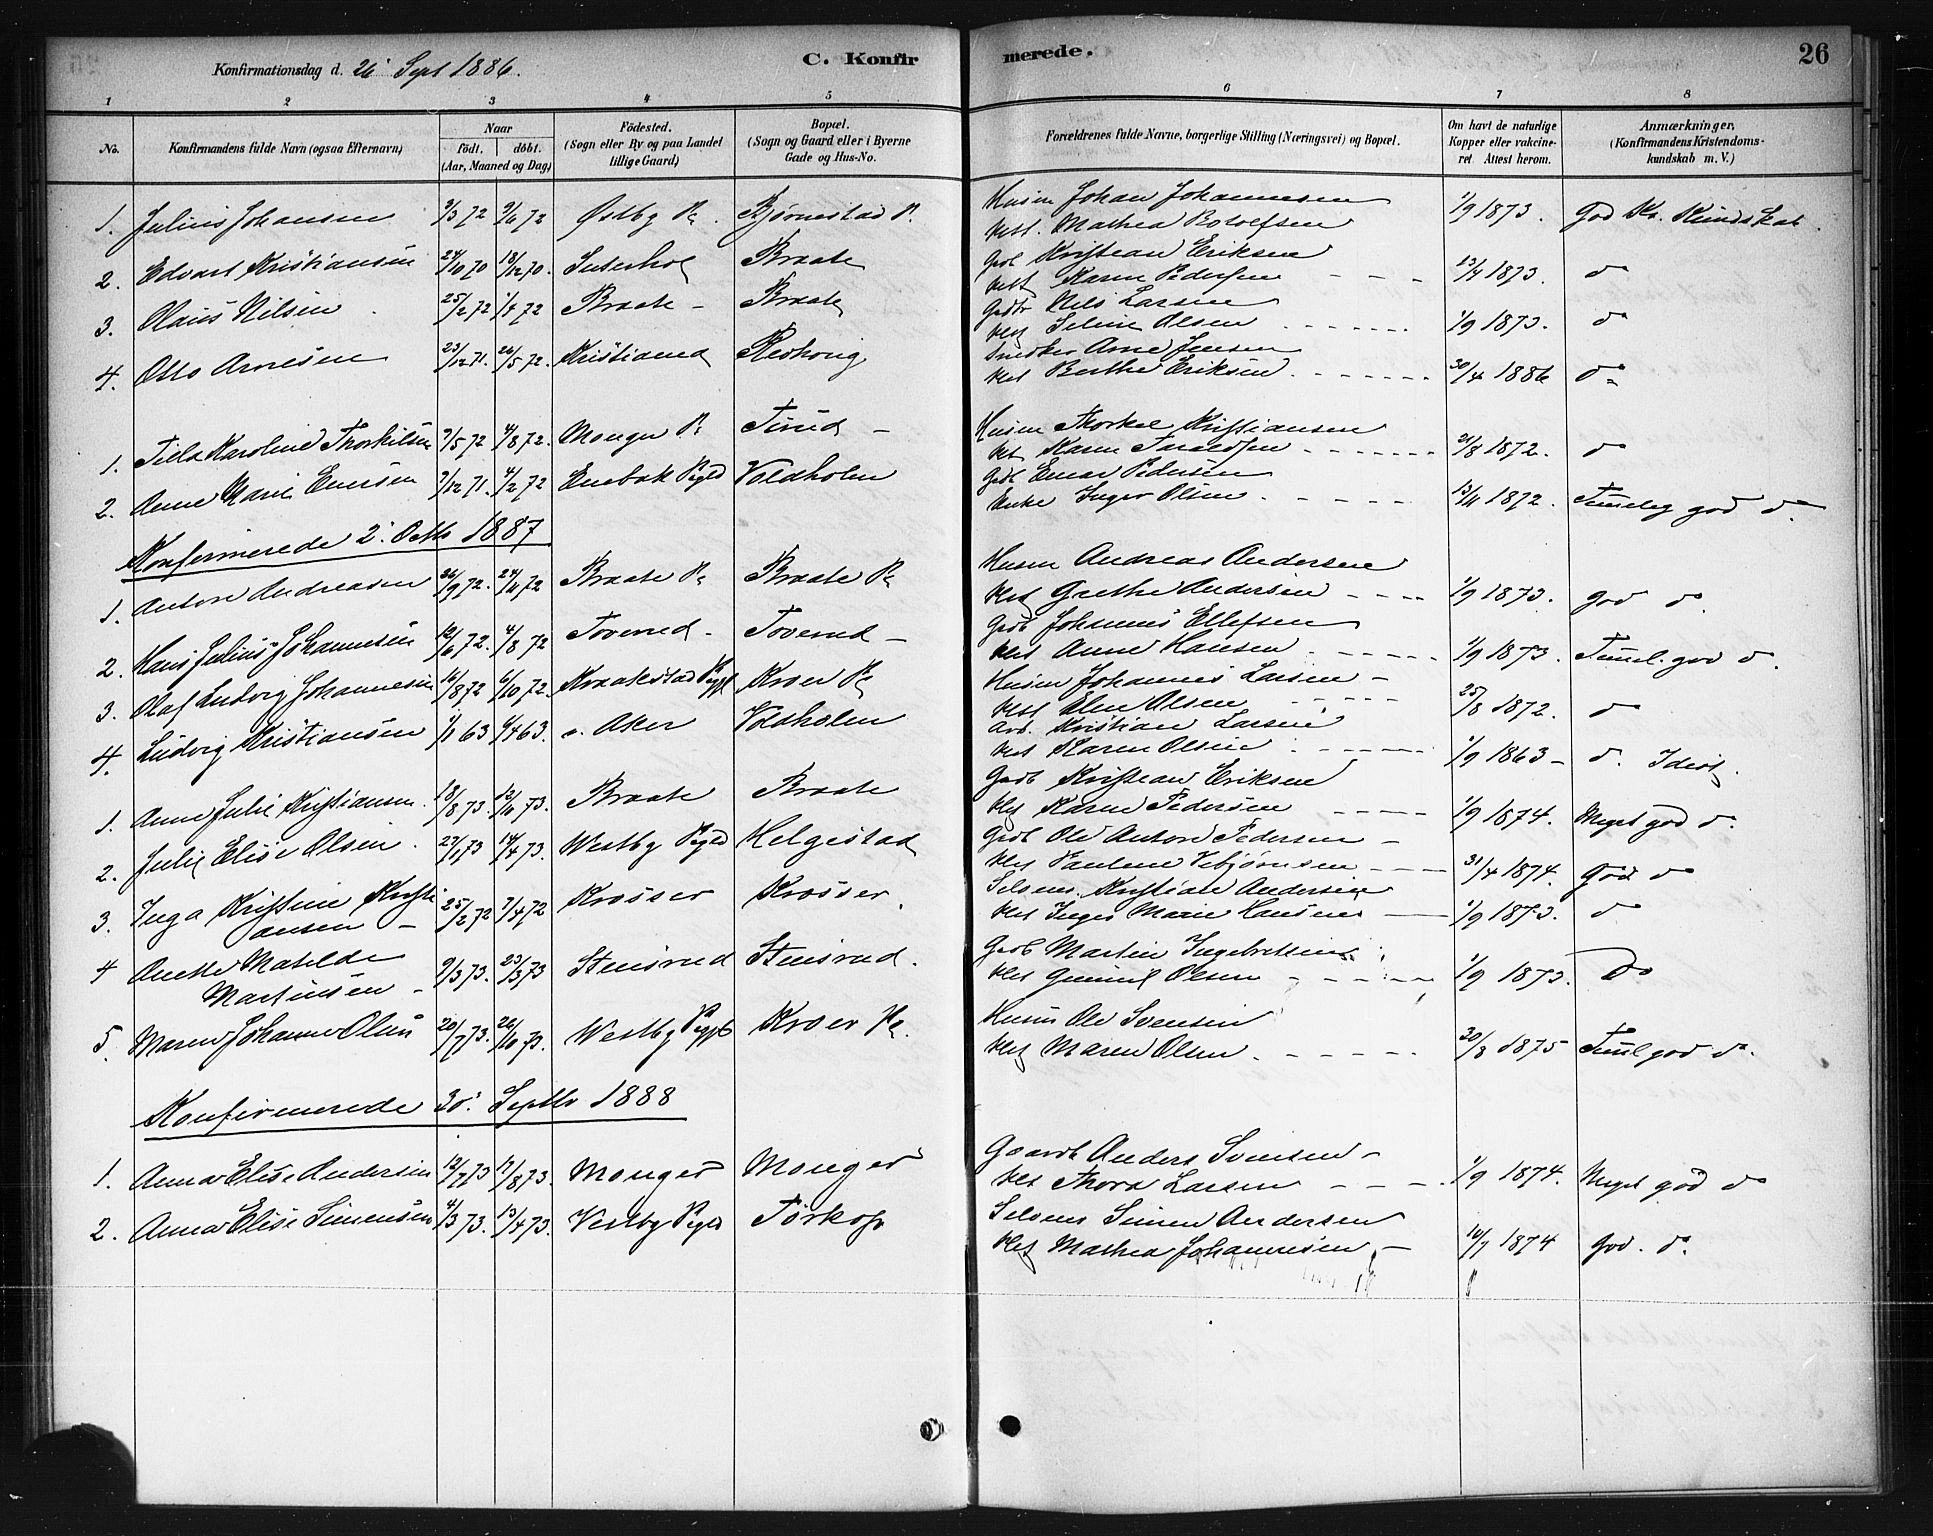 Konfirmationsdag d. 26' Sept 1886. C. Konfirmerede. 26
1 2 3 4 5 6 7 8
No. Konfirmandens fulde Navn (ogsaa Efternavn) Naar födt. döbt. (Aar, Maaned og Dag) Födested. (Sogn eller By og paa Landet tillige Gaard) Bopæl. (Sogn og Gaard eller i Byerne Gade og Hus-No. Forældrenes fulde Navne, borgerlige Stilling (Næringsvei) og Bopæl. Om havt de naturlige Kopper eller vakcineret Attest herom. Anmærkninger, (Konfirmandens Kristendomskundskab m. V.)
1. Julius Johansen 9/3 72 9/6 72 Østby Pl. Bjørnestad P. Husm Johan Johannesen
Mathea Botolfsen 1/9 1873. God Kr. Kundskab.
2. Edvart Kristiansen 24/10 70 18/12 70. Braate Kristian Eriksen
Karen Pedersen 13/4 1873. do
3. Olaus Nilsen 25/2 72 1/4 72 Braate Braate Nils Larsen
Olsen 1/9 1873. do
4. Otto Arnesen 23/12 71. 26/5 72. Arne Jensen
Berthe Eriksen 30/4 1886 do
1. Karoline Thorkilsen 7/5 72 4/8 72. Monger Pl Husm Thorkel Kristiansen
Karen 21/8 1872. do
2. Anne Marie Emersen 7/12 71. 4/2 72 Enebak Pgld Voldholen Pedersen
Enke Inger Olsen 13/11 1872. Temelig god do
Konfirmerede 2' Octb 1887
1. Anton Andreasen 26/9 72. 24/11 72 Braate Pl Braate Pl Husm Andreas Andersen
Grethe Andersen 1/9 1873. god do
2. Hans Julius Johannesen 10/6 72. 4/8 72 Toverud Toverud Johannes Ellefsen
Anne Hansen 1/9 1873. Teml. god do.
3. Olaf Ludvig Johannesen 16/8 72 6/10 72. Kraakstad Kroer Pl Husm Johannes Larsen
Olsen 25/8 1872. do
4. Ludvig Kristiansen 1/1 63 6/4 63. v. Aker Voldholen Arb. Kristian Larsen
Karen Olsen 1/9 1863 do. Idiot.
1. Anne Julie Kristiansen 18/8 73. 12/10 73. Braate Braate Gaardb Kristian Eriksen
Karen Pedersen 1/9 1874. Meget god do.
2. Julie Elise Olsen 27/1 73 14/4 73. Westby Helgestad Ole Anton Pedersen
Pauline Vebjørnsen 31/4 1874. God do
3. Inga Kristine Kristiansen 25/2 72 7/4 72 Krosser Krosser. Selveier Kristian Andersen
Inger Marie Hansen 1/9 1873. do
4 Anette Matelde Martinsen 9/3 73. 23/3 73 Stensrud Stensrud. Martin Ingebretsen
Gunnil Olsen 1/9 1873. do
5. Maren Johanne Olsen 20/7 73. 26/10 73. Westby Kroer Pl. Husm Ole Svensen
Maren Olsen 30/8 1875 Teml god do.
Konfirmerede 30' Septbr 1888
1. Anna Elise Andersen 12/7 73 17/8 73. Monger Monger Gaardb Anders Svensen
Thora Larsen 1/9 1874. Meget god do
2. Anna Elise Simensen 4/3 73. 13/4 73. Vestby Pgld Tørkop Selveier Simen Andersen
Mathea Johannesen 14/7 1874 God. do.